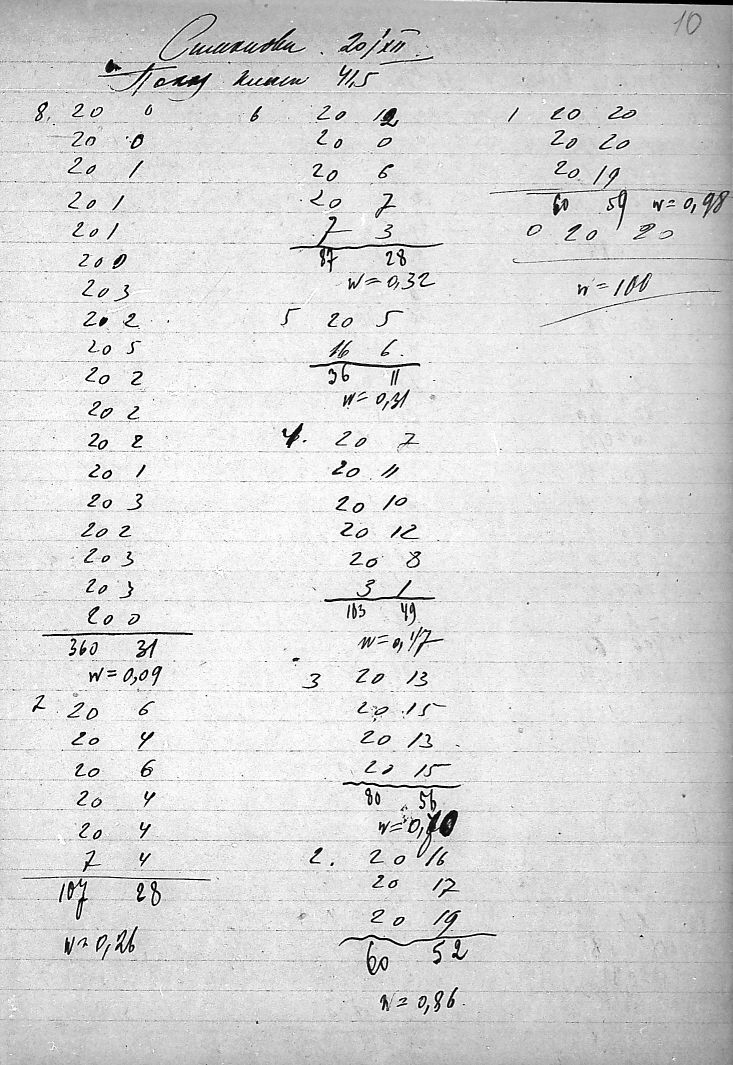 10
20/XII
41,5
8. 20 0
20 0
20 1
20 1
20 1
20 0
20 3
20 2
20 5
20 2
20 2
20 2
20 1
20 3
20 2
20 3
20 3
20 0
360 31
w=0,09
7 20 6
20 4
20 6
20 4
20 4
7 4
107 28
w=0,26
6 20 12
20 0
20 6
20 7
7 3
87 28
w=0,32
5 20 5
16 6
36 11
w=0,31
4. 20 7
20 11
20 10
20 12
20 8
3 1
103 49
w=0,47
3 20 13
20 15
20 13
20 15
80 56
w=0,70
2. 20 16
20 17
20 19
60 52
w=0,86.
1 20 20
20 20
20 19
60 59 w=0,98
0 20 20
w=100